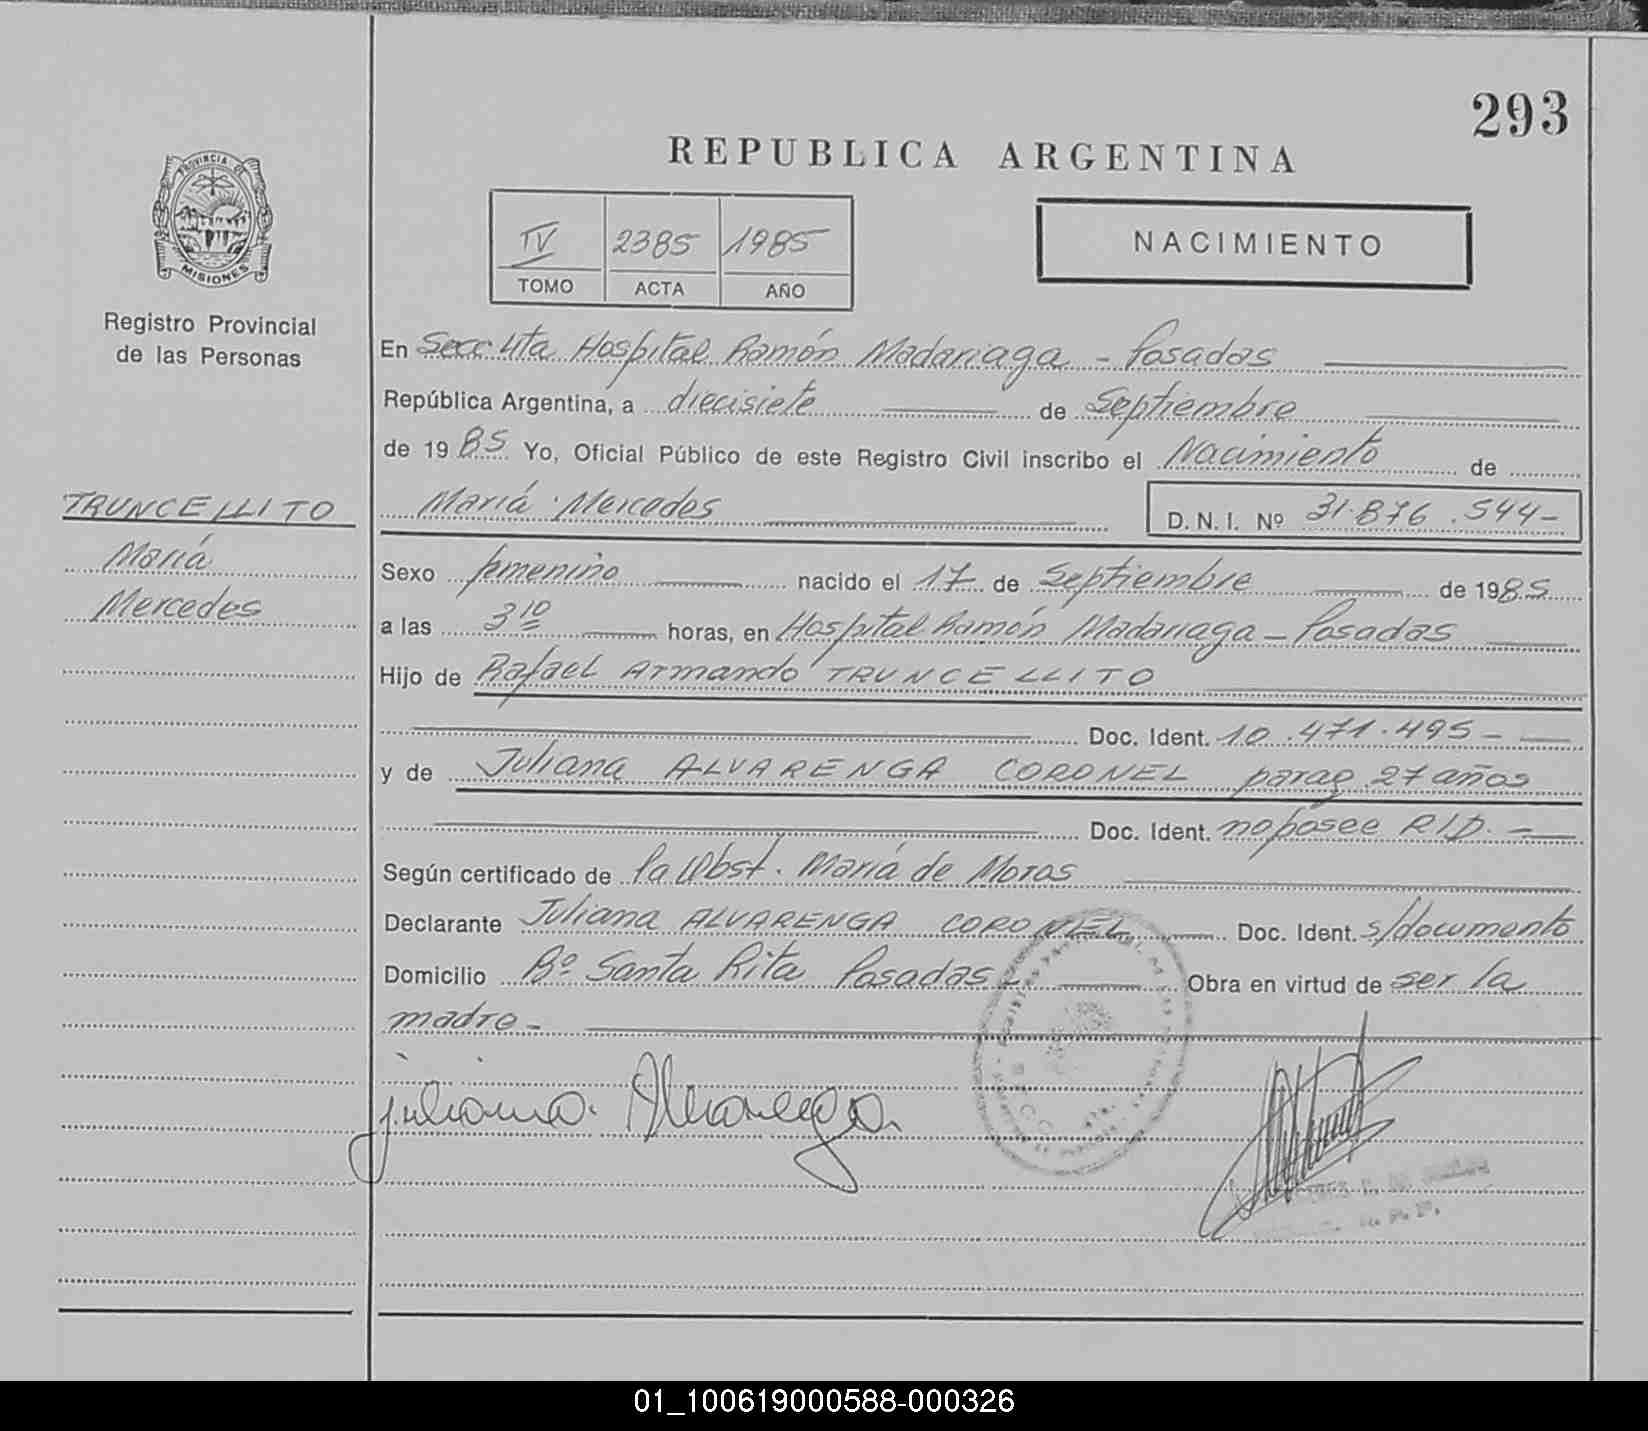 293
REPUBLICA ARGENTINA
PROVINCIA DE
MISIONES
Registro Provincial
de las Personas
IV 2385 1985
TOMO ACTA AÑO
NACIMIENTO
En Secc 4ta Hospital Ramón Madariaga - Posadas
República Argentina, a diecisiete de Septiembre
de 1985 Yo, Oficial Público de este Registro Civil inscribo el Nacimiento de
María Mercedes D. N. I. Nº 31.876.544-
TRUNCELLITO
María
Mercedes
Sexo femenino nacido el 17 de Septiembre de 1985
a las 3 10 horas, en Hospital Ramón Madariaga - Posadas
Hijo de Rafael Armando TRUNCELLITO
Doc. Ident. 10.471.495-
y de Juliana ALVARENGA CORONEL parag 27 años
Doc. Ident. no posee R/D. -
Según certificado de la Obst. María de Moras
Declarante Juliana ALVARENGA CORONEL Doc. Ident. s/documento
Domicilio Bº Santa Rita Posadas - Obra en virtud de ser la
madre -
juliana Alvarenga
01_100619000588-000326